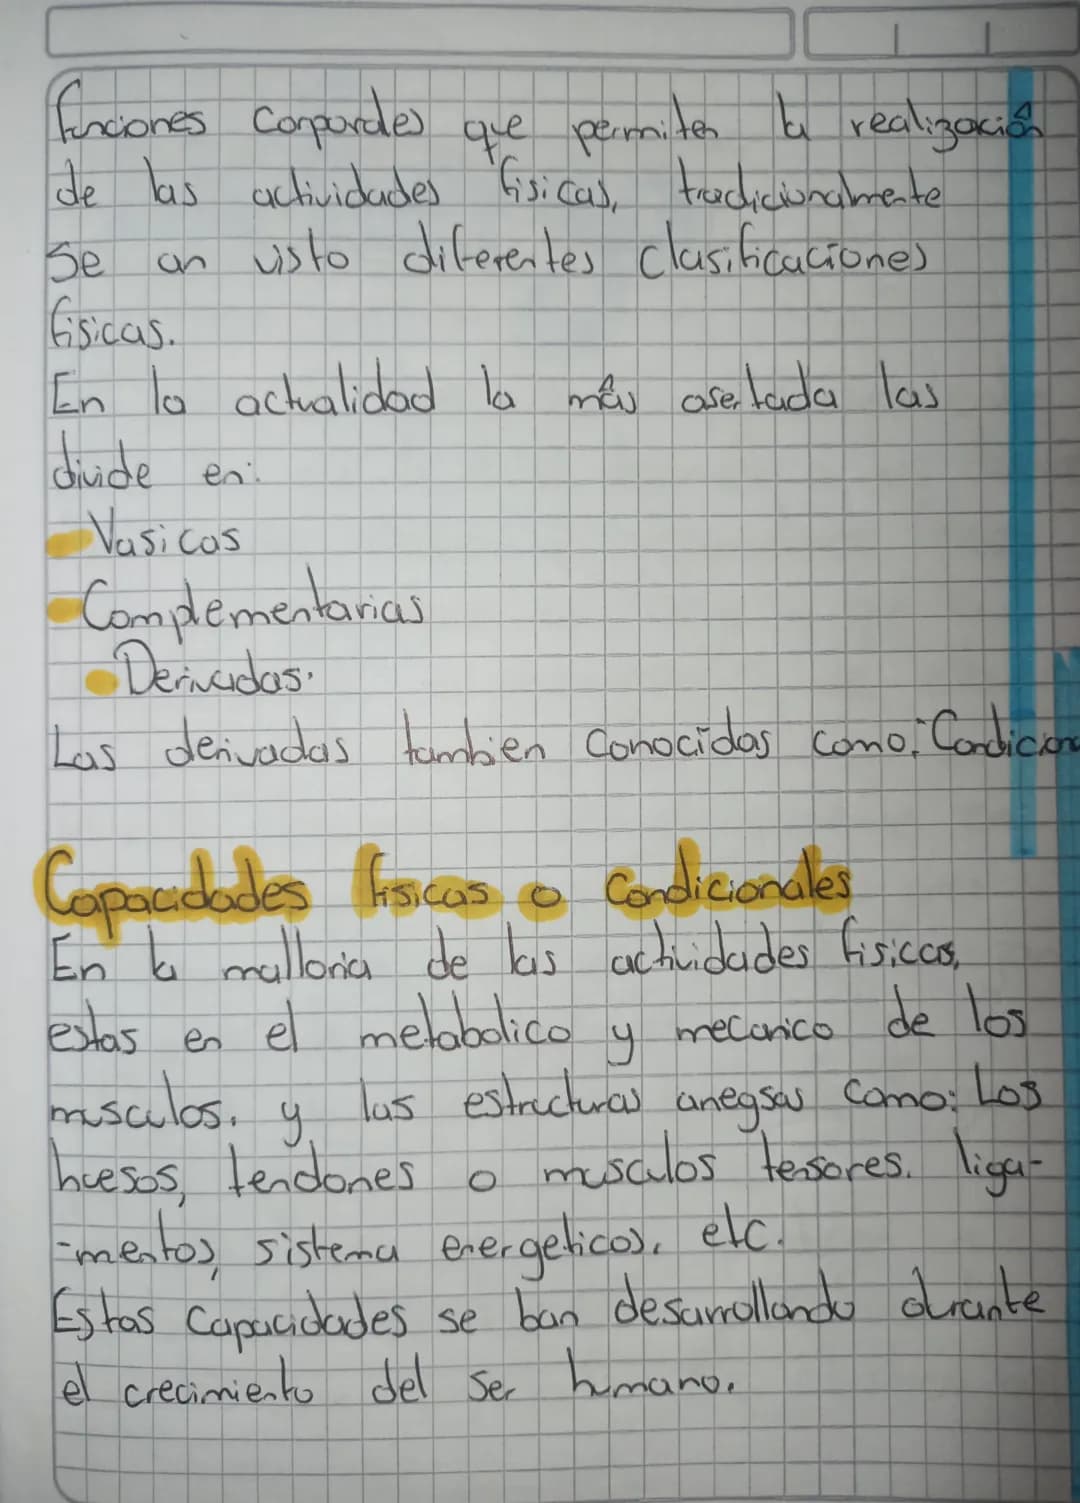 funciones corporales que permiten la realización
de las actividades fisicas, tradicionalmente
Se an visto diferentes clasificaciones
fisicas.
En la actualidad la más asertada las
divide en:
- Vasicas
- Complementarias
- Derivadas.
Las derivadas tambien conocidas como: Condicion
Capacidades fisicas o Condicionales
En la malloria de las actividades fisicas,
estas en el metabolico y mecanico de los
musculos. y las estructuras anegsas como: Los
huesos, tendones o musculos tensores. liga-
-mentos, sistema energeticos, etc.
Estas Capacidades se ban desarrollando durante
el crecimiento del ser humano.